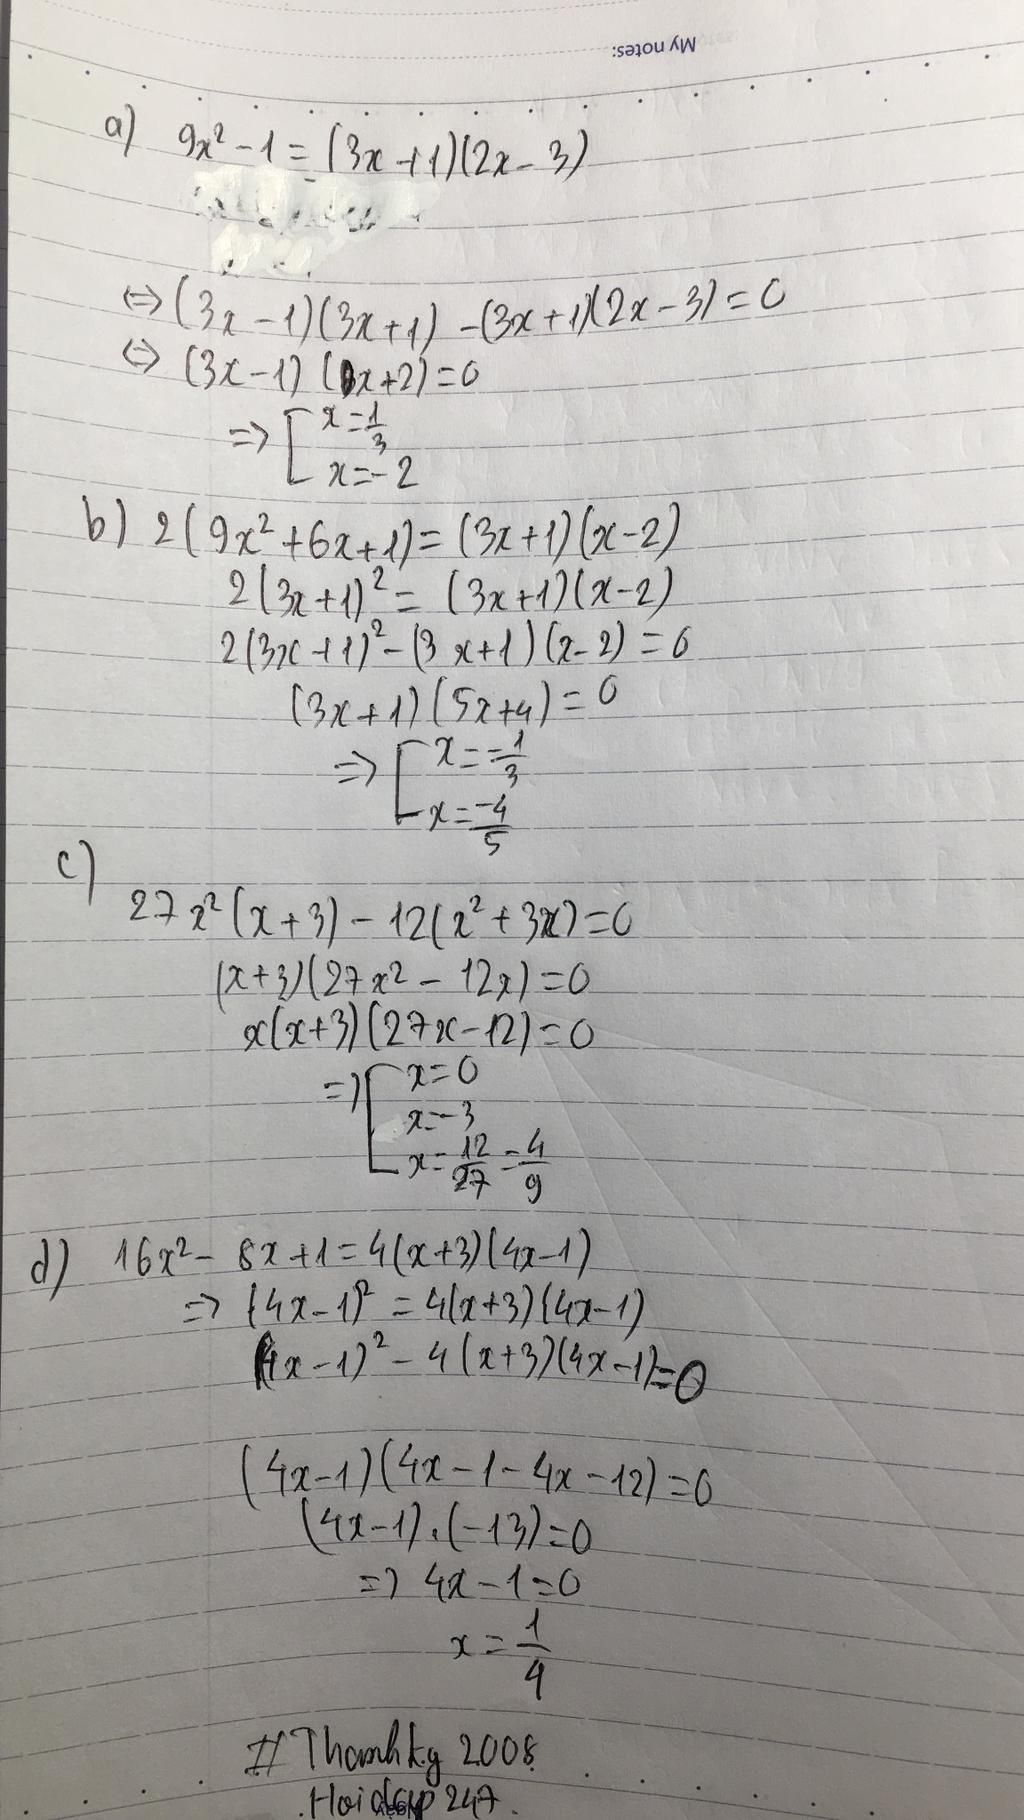 My notes:
a) 9x² - 1 = (3x+1)(2x-3)
⇔ (3x-1)(3x+1) - (3x+1)(2x-3) = 0
⇔ (3x-1) (x+2) = 0
⇒ [ x = 1/3
x = -2
b) 2(9x² + 6x + 1) = (3x+1)(x-2)
2(3x+1)² = (3x+1)(x-2)
2(3x+1)² - (3x+1)(x-2) = 0
(3x+1)(5x+4) = 0
⇒ [ x = -1/3
x = -4/5
c)
27x²(x+3) - 12(x²+3x) = 0
(x+3)(27x² - 12x) = 0
x(x+3)(27x-12) = 0
⇒ [ x = 0
x = -3
x = 12/27 = 4/9
d) 16x² - 8x + 1 = 4(x+3)(4x-1)
⇒ (4x-1)² = 4(x+3)(4x-1)
(4x-1)² - 4(x+3)(4x-1) = 0
(4x-1)(4x-1-4x-12) = 0
(4x-1).(-13) = 0
⇒ 4x-1 = 0
x = 1/4
2008
Hoidap 247.